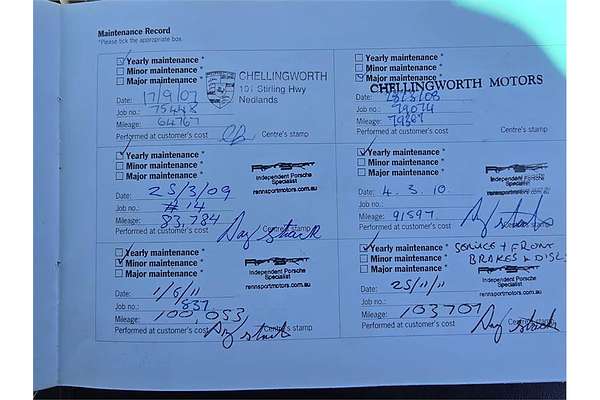 Maintenance Record
*Please tick the appropriate box.
Yearly maintenance *
Minor maintenance *
Major maintenance *
CHELLINGWORTH
101 Stirling Hwy
Nedlands
Date: 17/9/07
Job no.: 75448
Mileage: 64767
Performed at customer's cost
Centre's stamp
Yearly maintenance *
Minor maintenance *
Major maintenance *
CHELLINGWORTH MOTORS
Date: 18/3/08
Job no.: 79074
Mileage:
Performed at customer's cost
Centre's stamp
Yearly maintenance *
Minor maintenance *
Major maintenance *
Independent Porsche
Specialist
rennsportmotors.com.au
Date: 25/3/09
Job no.: #14
Mileage: 83,784
Performed at customer's cost
Centre's stamp
Yearly maintenance *
Minor maintenance *
Major maintenance *
Independent Porsche
Specialist
rennsportmotors.com.au
Date: 4.3.10.
Job no.:
Mileage: 91597
Performed at customer's cost
Centre's stamp
Yearly maintenance *
Minor maintenance *
Major maintenance *
Independent Porsche
Specialist
rennsportmotors.com.au
Date: 1/6/11
Job no.: 837
Mileage: 100,053
Performed at customer's cost
Centre's stamp
Yearly maintenance *
Minor maintenance *
Major maintenance *
SERVICE + FRONT
BRAKES & DISCS
Independent Porsche
Specialist
rennsportmotors.com.au
Date: 25/11/11
Job no.:
Mileage: 103707
Performed at customer's cost
Centre's stamp